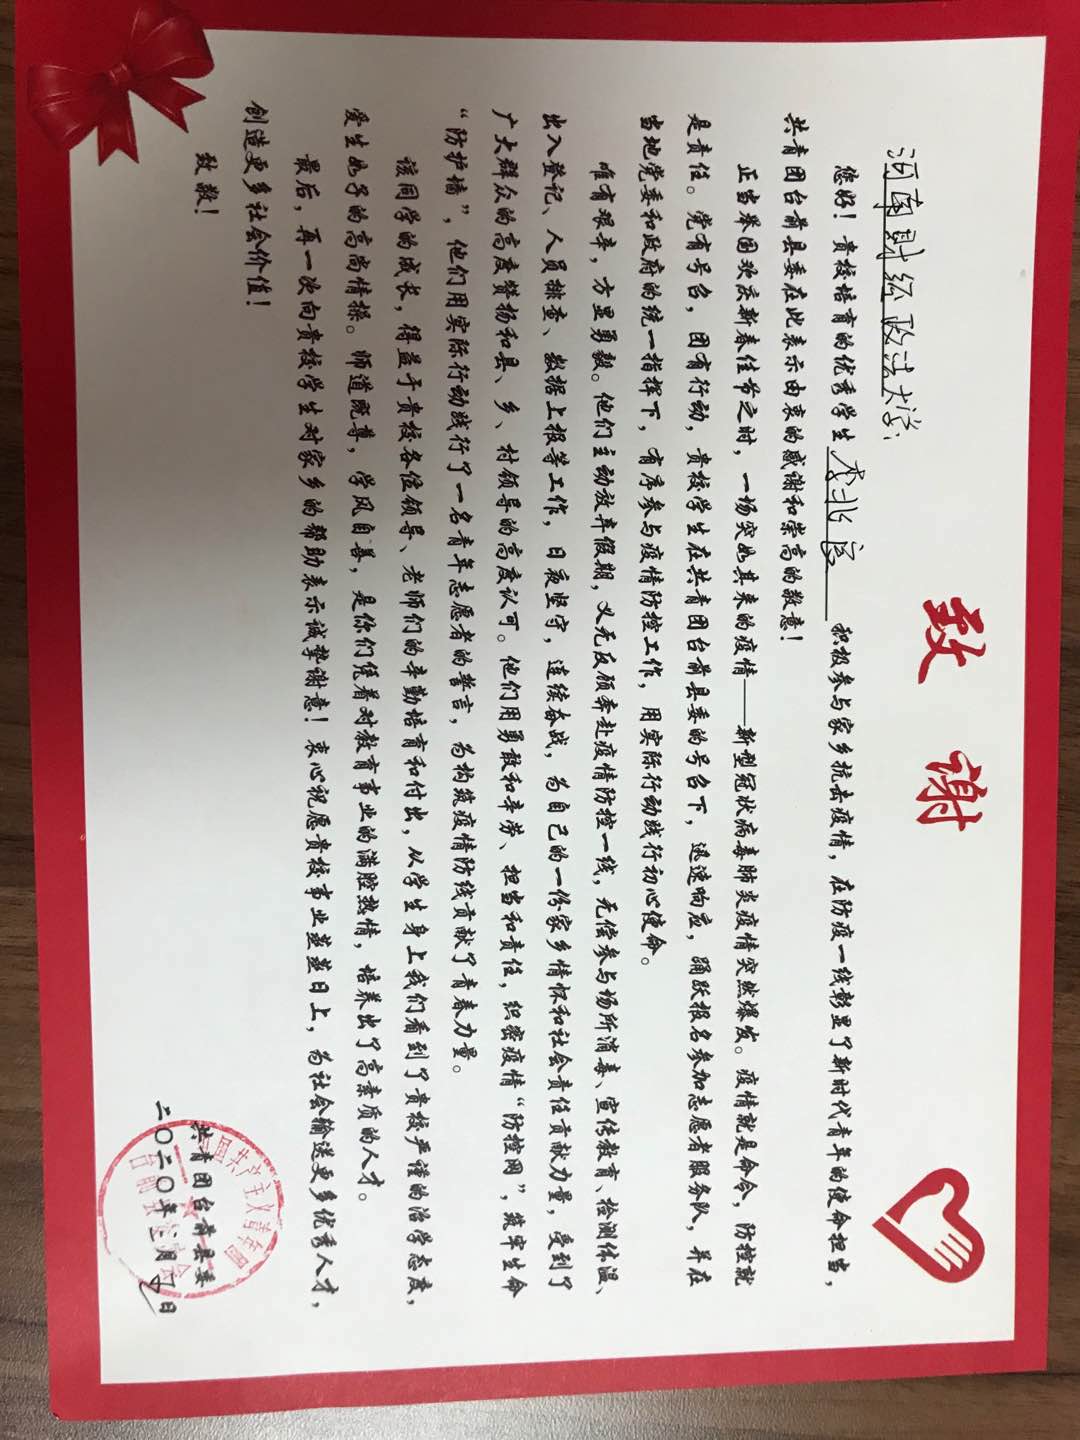 致谢
河南财经政法大学：
您好！贵校培育的优秀学生李北辰积极参与家乡抗击疫情，在防疫一线彰显了新时代青年的使命担当，
共青团台前县委在此表示由衷的感谢和崇高的敬意！
正当举国欢庆新春佳节之时，一场突如其来的疫情——新型冠状病毒肺炎疫情突然爆发。疫情就是命令，防控就
是责任。党有号召，团有行动，贵校学生在共青团台前县委的号召下，迅速响应，踊跃报名参加志愿者服务队，并在
当地党委和政府的统一指挥下，有序参与疫情防控工作，用实际行动践行初心使命。
唯有艰辛，方显勇毅。他们主动放弃假期，义无反顾奔赴疫情防控一线，无偿参与场所消毒、宣传教育、检测体温、
出入登记、人员排查、数据上报等工作，日夜坚守，连续奋战，为自己的一份家乡情怀和社会责任贡献力量，受到了
广大群众的高度赞扬和县、乡、村领导的高度认可。他们用勇敢和辛劳、担当和责任，织密疫情“防控网”，筑牢生命
“防护墙”，他们用实际行动践行了一名青年志愿者的誓言，为构筑疫情防线贡献了青春力量。
该同学的成长，得益于贵校各位领导、老师们的辛勤培育和付出，从学生身上我们看到了贵校严谨的治学态度，
爱生如子的高尚情操。师道既尊，学风自善，是你们凭着对教育事业的满腔热情，培养出了高素质的人才。
最后，再一次向贵校学生对家乡的帮助表示诚挚谢意！衷心祝愿贵校事业蒸蒸日上，为社会输送更多优秀人才，
创造更多社会价值！
致敬！
共青团台前县委
二〇二〇年三月 日